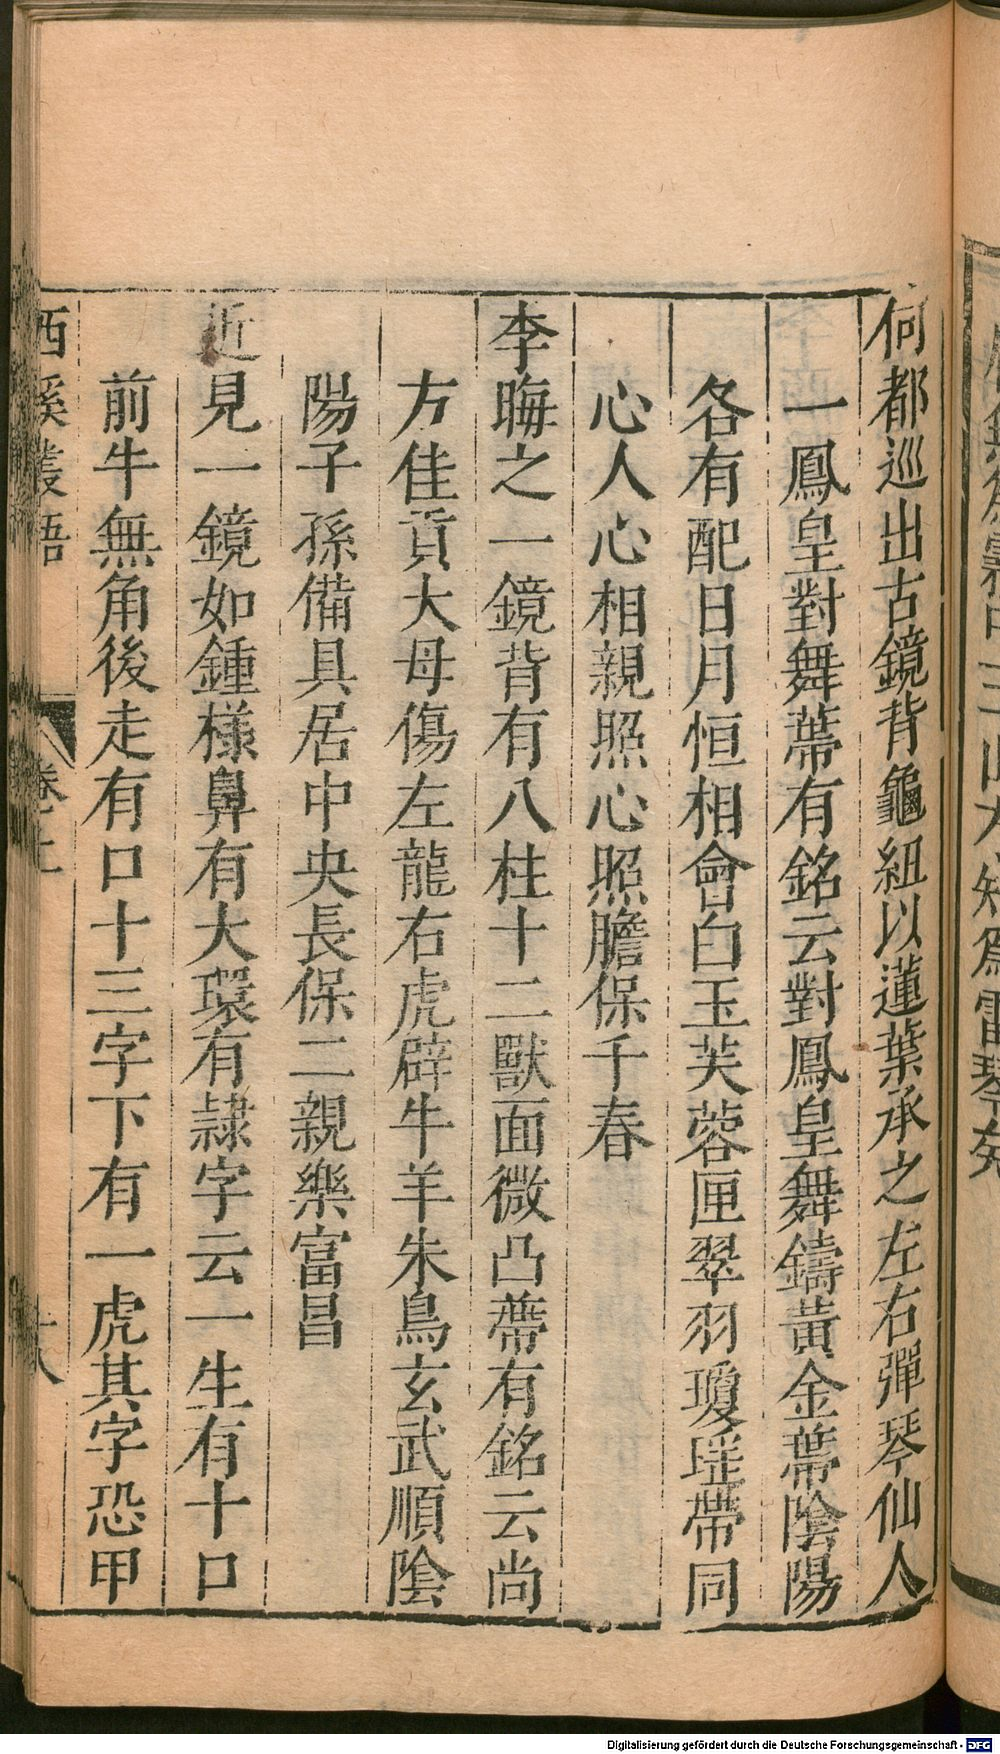 何都巡出古鏡背龜紐以蓮葉承之左右彈琴仙人
一鳳皇對舞蔕有銘云對鳳皇舞鑄黃金蔕陰陽
各有配日月恒相會白玉芙蓉匣翠羽瓊瑶帶同
心人心相親照心照膽保千春
李晦之一鏡背有八柱十二獸面微凸蔕有銘云尚
方佳貢大毋傷左龍右虎辟牛羊朱鳥玄武順陰
陽子孫備具居中央長保二親樂富昌
近見一鏡如鍾樣鼻有大環有隷字云一生有十口
前牛無角後走有口十三字下有一虎其字恐甲
西溪叢語 卷上 十八
Digitalisierung gefördert durch die Deutsche Forschungsgemeinschaft - DFG